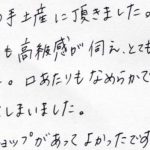 の手土産に頂きました。
も高級感が伺え、とても
。口あたりもなめらかで
てしまいました。
ョップがあってよかったです